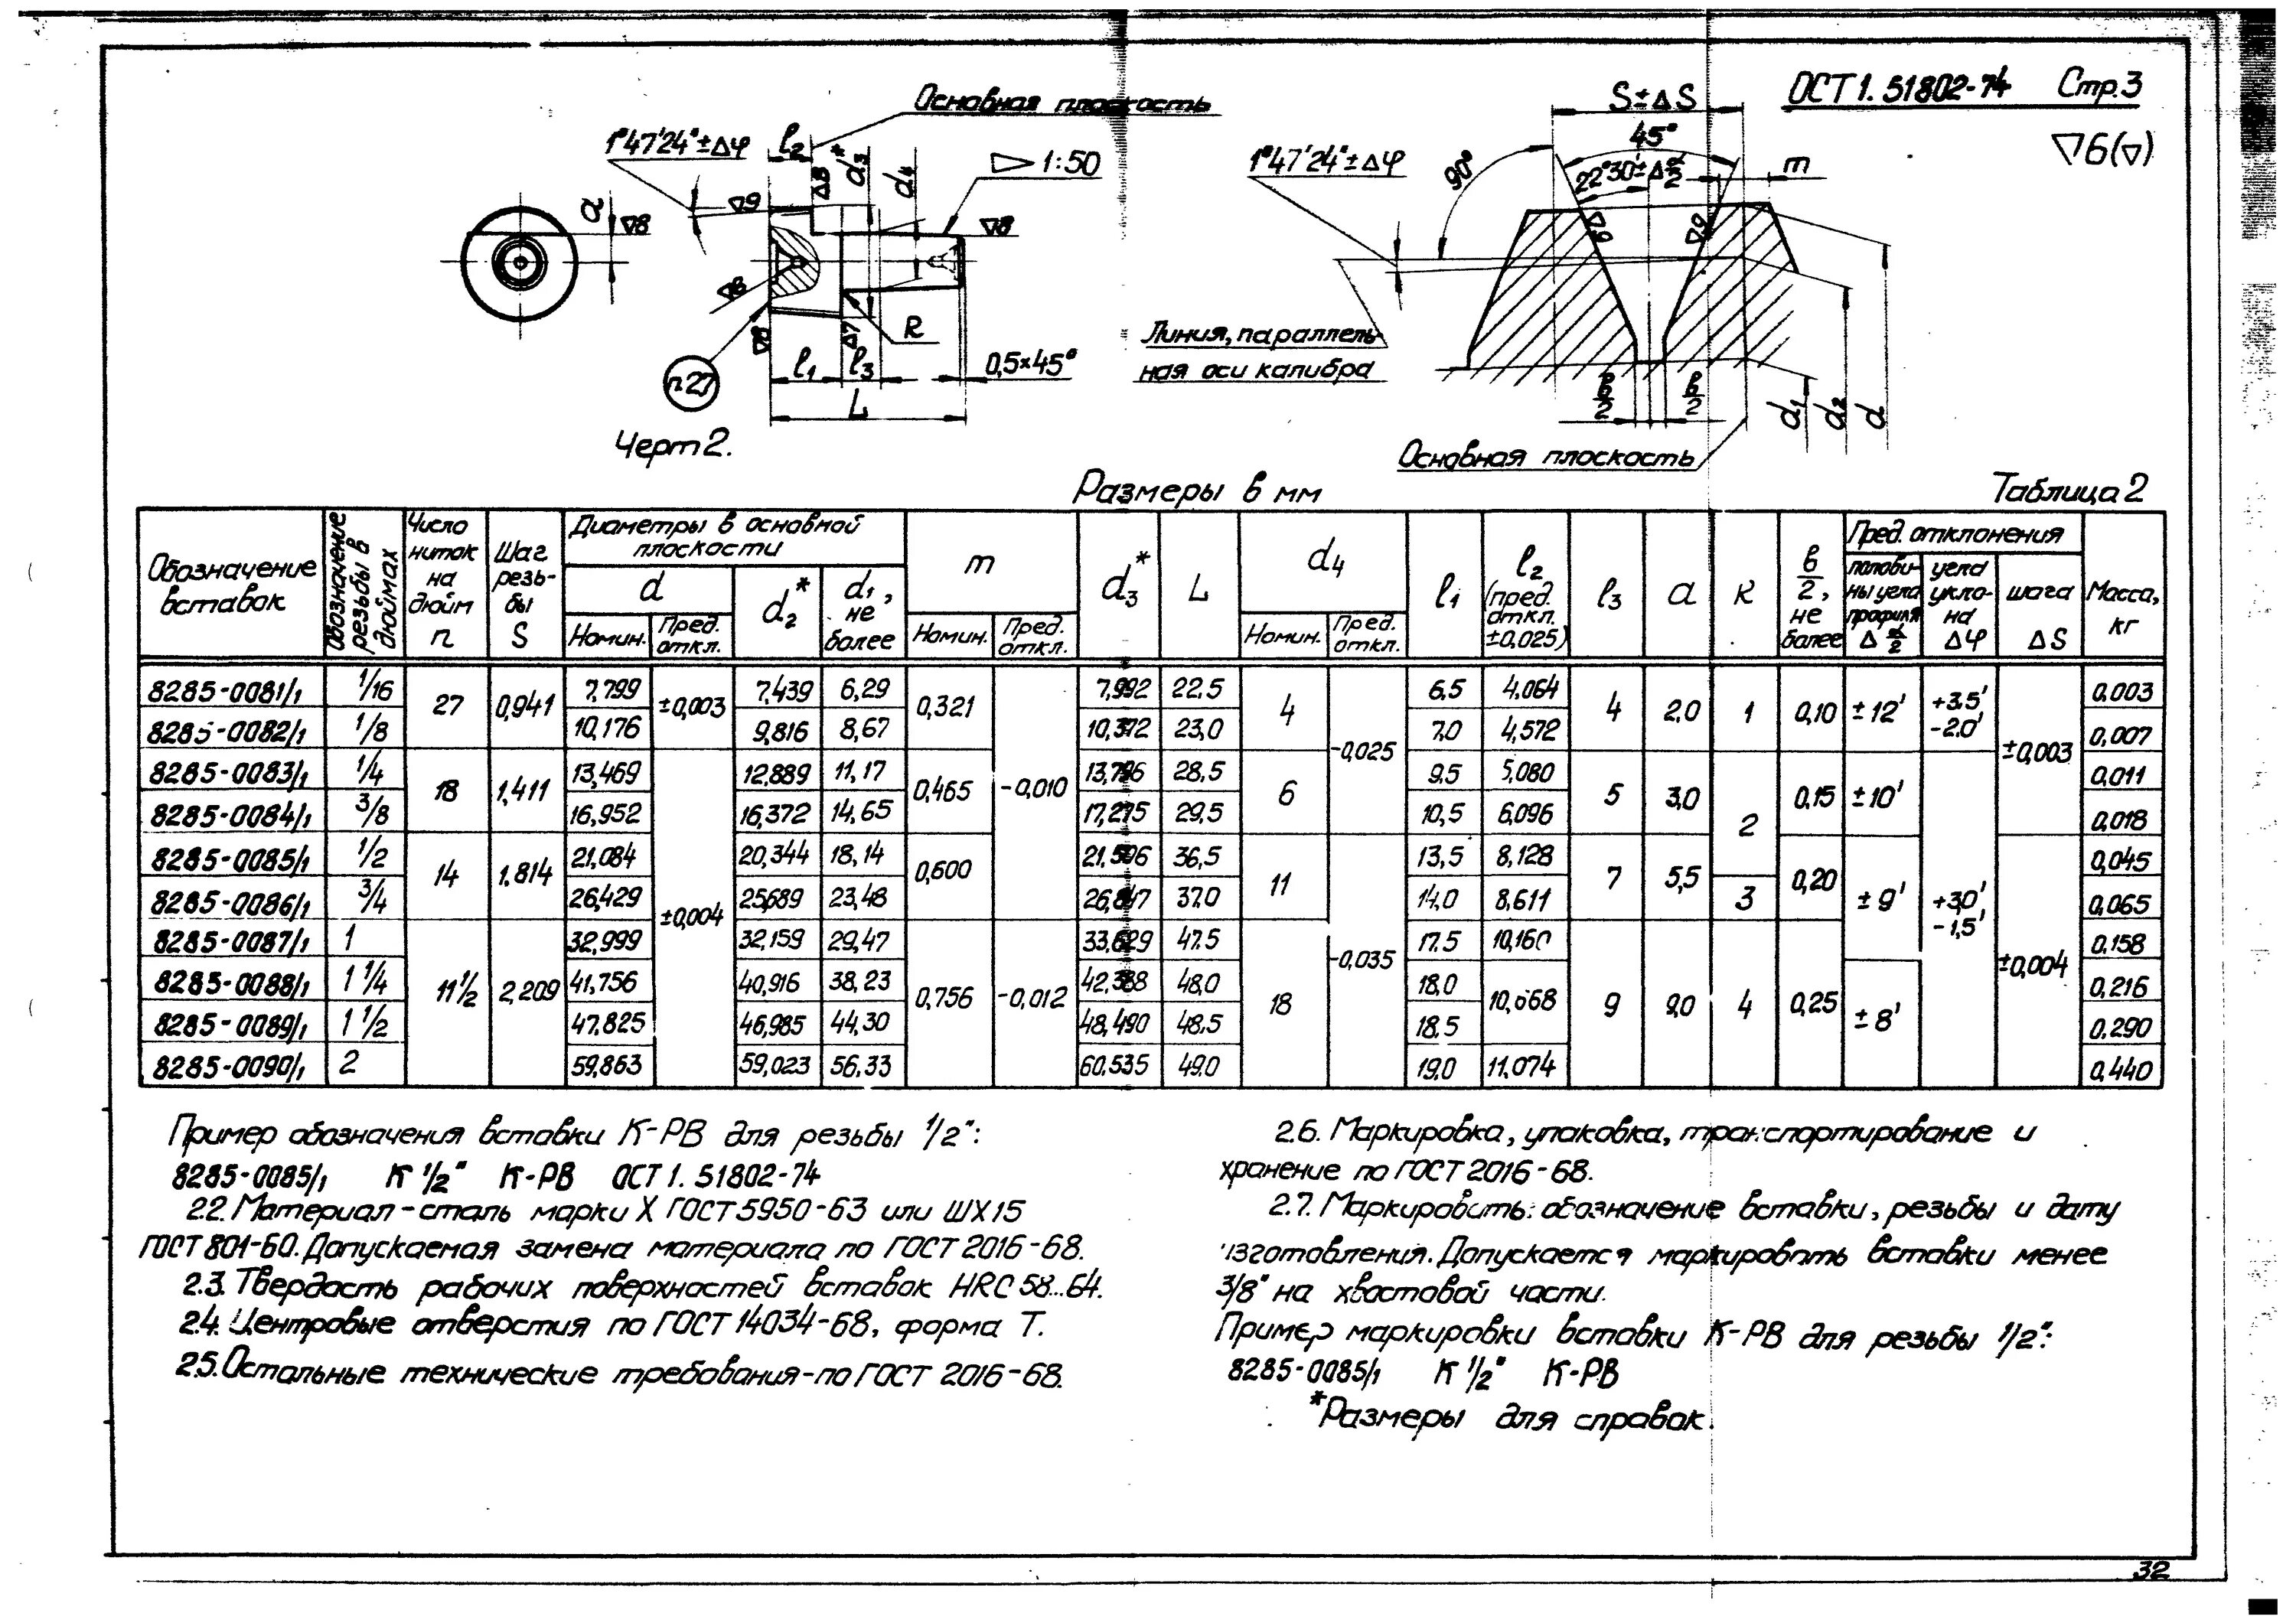 ОСТ 1. 51802-74 Стр.3
▽6(▽)
Основная плоскость
1°47′24″±Δφ
l₂
▽8
d₃*
d₄
▷ 1:50
a
▽8
▽9
▽8
▽8
▽8
▽7
R
п27
l₁
l₃
0,5×45°
L
Черт 2.
S±ΔS
45°
1°47′24″±Δφ
90°
22°30′±Δα/2
m
▽9
▽9
Линия, параллель-
ная оси калибра
в/2
в/2
d₁
d₂
d
Основная плоскость
Размеры в мм
Таблица 2
Обозначение вставок
Обозначение резьбы в дюймах
Число ниток на дюйм n
Шаг резь-бы S
Диаметры в основной плоскости
d
Номин.
Пред. откл.
d₂*
d₁, не более
m
Номин.
Пред. откл.
d₃*
L
d₄
Номин.
Пред. откл.
l₁
l₂ (пред. откл. ±0,025)
l₃
a
R
в/2, не более
Пред. отклонения
полови-ны угла профиля Δα/2
угла укло-на Δφ
шага ΔS
Масса, кг
8285-0081/1 1/16 27 0,941 7,799 ±0,003 7,439 6,29 0,321 -0,010 7,992 22,5 4 -0,025 6,5 4,064 4 2,0 1 0,10 ±12′ +3,5′ -2,0′ ±0,003 0,003
8285-0082/1 1/8 10,176 9,816 8,67 10,372 23,0 7,0 4,572 0,007
8285-0083/1 1/4 18 1,411 13,469 ±0,004 12,889 11,17 0,465 13,796 28,5 6 9,5 5,080 5 3,0 2 0,15 ±10′ +3,0′ -1,5′ 0,011
8285-0084/1 3/8 16,952 16,372 14,65 17,275 29,5 10,5 6,096 0,018
8285-0085/1 1/2 14 1,814 21,084 20,344 18,14 0,600 36,5 11 -0,035 13,5 8,128 7 5,5 0,20 ±9′ ±0,004 0,045
8285-0086/1 3/4 26,429 25,689 23,48 37,0 14,0 8,611 3 0,065
8285-0087/1 1 11 1/2 2,209 32,999 32,159 29,47 0,756 -0,012 47,5 18 17,5 10,160 9 9,0 4 0,25 0,158
8285-0088/1 1 1/4 41,756 40,916 38,23 48,0 18,0 10,668 ±8′ 0,216
8285-0089/1 1 1/2 47,825 46,985 44,30 48,490 48,5 18,5 0,290
8285-0090/1 2 59,863 59,023 56,33 60,535 49,0 19,0 11,074 0,440
Пример обозначения вставки К-РВ для резьбы 1/2":
8285-0085/1 К 1/2" К-РВ ОСТ 1. 51802-74
2.2. Материал-сталь марки Х ГОСТ 5950-63 или ШХ15
ГОСТ 801-60. Допускаемая замена материала по ГОСТ 2016-68.
2.3. Твердость рабочих поверхностей вставок HRC 58...64.
2.4. Центровые отверстия по ГОСТ 14034-68, форма Т.
2.5. Остальные технические требования-по ГОСТ 2016-68.
2.6. Маркировка, упаковка, транспортирование и
хранение по ГОСТ 2016-68.
2.7. Маркировать: обозначение вставки, резьбы и дату
изготовления. Допускается маркировать вставки менее
3/8" на хвостовой части.
Пример маркировки вставки К-РВ для резьбы 1/2":
8285-0085/1 К 1/2" К-РВ
*Размеры для справок.
32